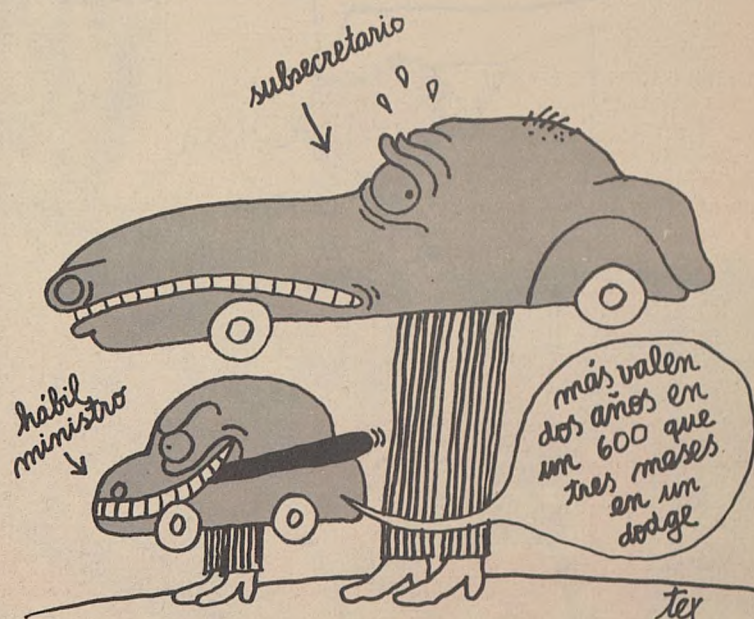 subsecretario
hábil
ministro
más valen
dos años en
un 600 que
tres meses
en un
dodge
tex